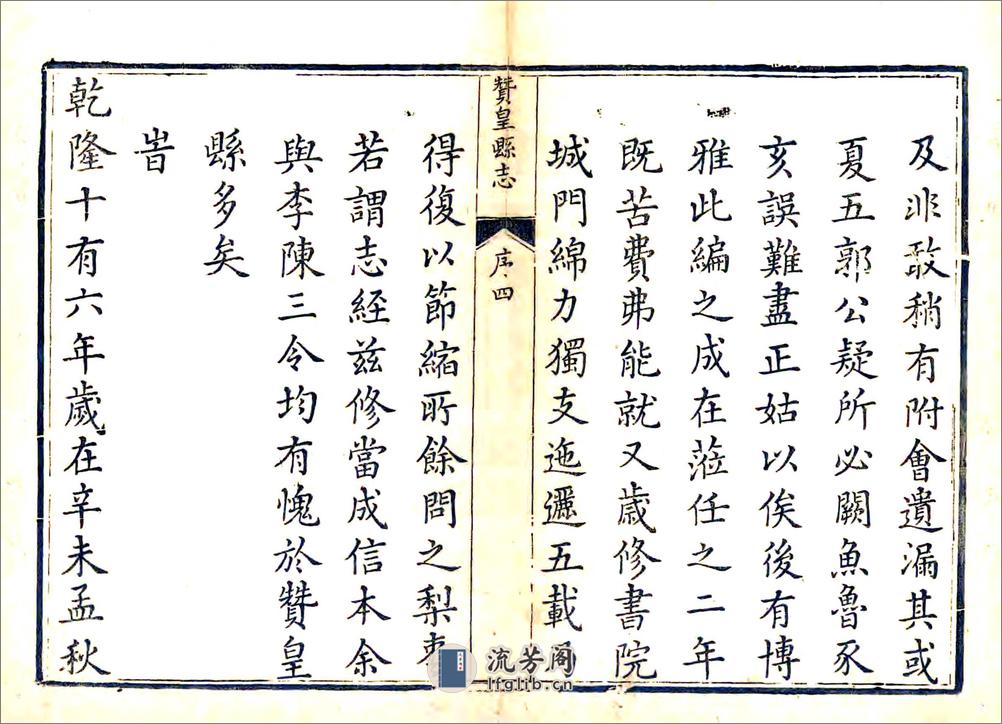 及非敢稍有附會遺漏其或
夏五郭公疑所必闕魚魯豕
亥誤難盡正姑以俟後有博
雅此編之成在蒞任之二年
既苦費弗能就又歲修書院
城門綿力獨支迤邐五載
贊皇縣志
序
四
得復以節縮所餘問之梨
若謂志經茲修當成信本余
與李陳三令均有愧於贊皇
縣多矣
旹
乾隆十有六年歲在辛未孟秋
流芳阁
lfglib.cn